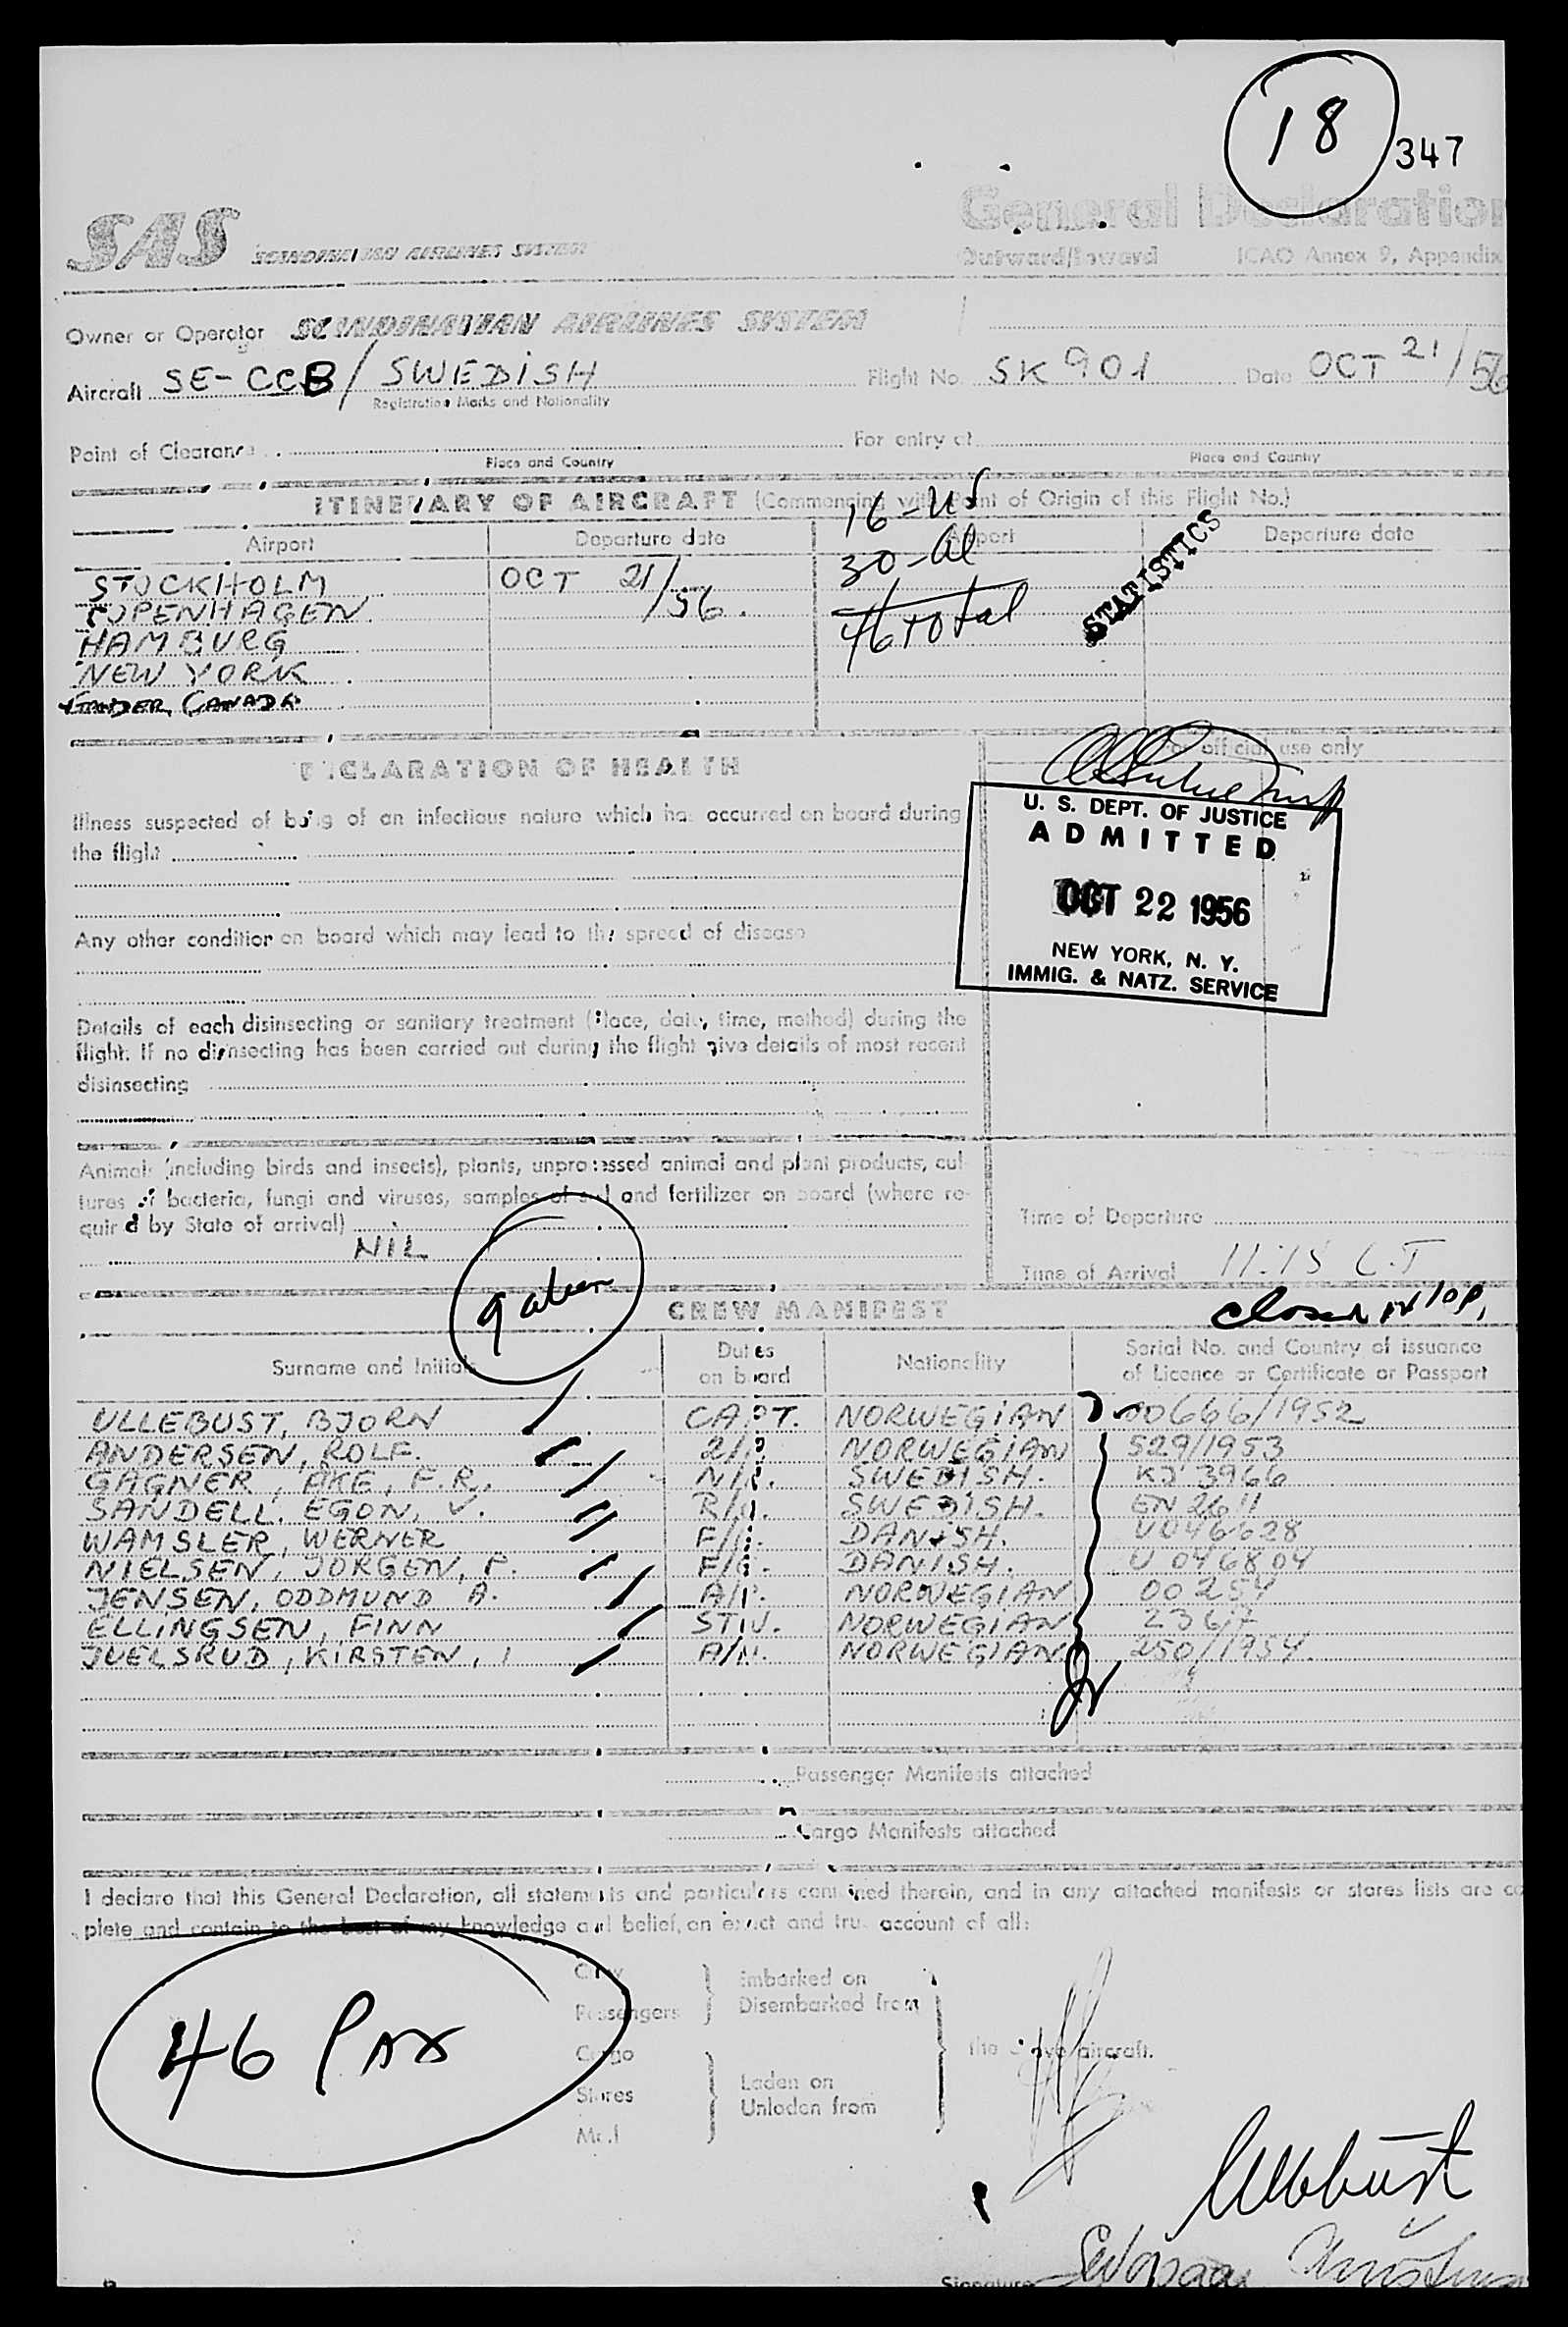 18
347
SAS SCANDINAVIAN AIRLINES SYSTEM
General Declaration
Outward/Inward ICAO Annex 9, Appendix
Owner or Operator SCANDINAVIAN AIRLINES SYSTEM
Aircraft SE-CCB / SWEDISH Flight No. SK 901 Date OCT 21/56
Registration Marks and Nationality
Point of Clearance For entry at
Place and Country Place and Country
ITINERARY OF AIRCRAFT (Commencing with Point of Origin of this Flight No.)
Airport Departure date Airport Departure date
16-US
30-al
46 total
STATISTICS
STOCKHOLM OCT 21/56.
COPENHAGEN
HAMBURG
NEW YORK
GANDER, CANADA
DECLARATION OF HEALTH
For official use only
Illness suspected of being of an infectious nature which has occurred on board during
the flight
U. S. DEPT. OF JUSTICE
ADMITTED
OCT 22 1956
NEW YORK, N. Y.
IMMIG. & NATZ. SERVICE
Any other condition on board which may lead to the spread of disease
Details of each disinsecting or sanitary treatment (Place, date, time, method) during the
flight. If no disinsecting has been carried out during the flight give details of most recent
disinsecting
Animals (including birds and insects), plants, unprocessed animal and plant products, cul-
tures of bacteria, fungi and viruses, samples of soil and fertilizer on board (where re-
quired by State of arrival)
NIL
Time of Departure
Time of Arrival 11.15 L.T
9 alien
CREW MANIFEST
closed
Surname and Initials Duties on board Nationality Serial No. and Country of issuance of Licence or Certificate or Passport
ULLEBUST, BJORN CAPT. NORWEGIAN 00666/1952
ANDERSEN, ROLF. 2/P NORWEGIAN 529/1953
GAGNER, AKE, F.R. N/R. SWEDISH. KJ 3966
SANDELL, EGON, V. R/O. SWEDISH. EN 2611
WAMSLER, WERNER F/E. DANISH. U046628
NIELSEN, JORGEN, P. F/E. DANISH. U 046804
JENSEN, ODDMUND A. A/P. NORWEGIAN 00254
ELLINGSEN, FINN STW. NORWEGIAN 2367
JUELSRUD, KIRSTEN, I A/H. NORWEGIAN 250/1954.
Passenger Manifests attached
Cargo Manifests attached
I declare that this General Declaration, all statements and particulars contained therein, and in any attached manifests or stores lists are co
plete and contain to the best of my knowledge and belief, an exact and true account of all:
46 PAX
Crew
Passengers
Embarked on
Disembarked from
Cargo
Stores
Mail
Laden on
Unladen from
the above aircraft.
Ullebust
Signature